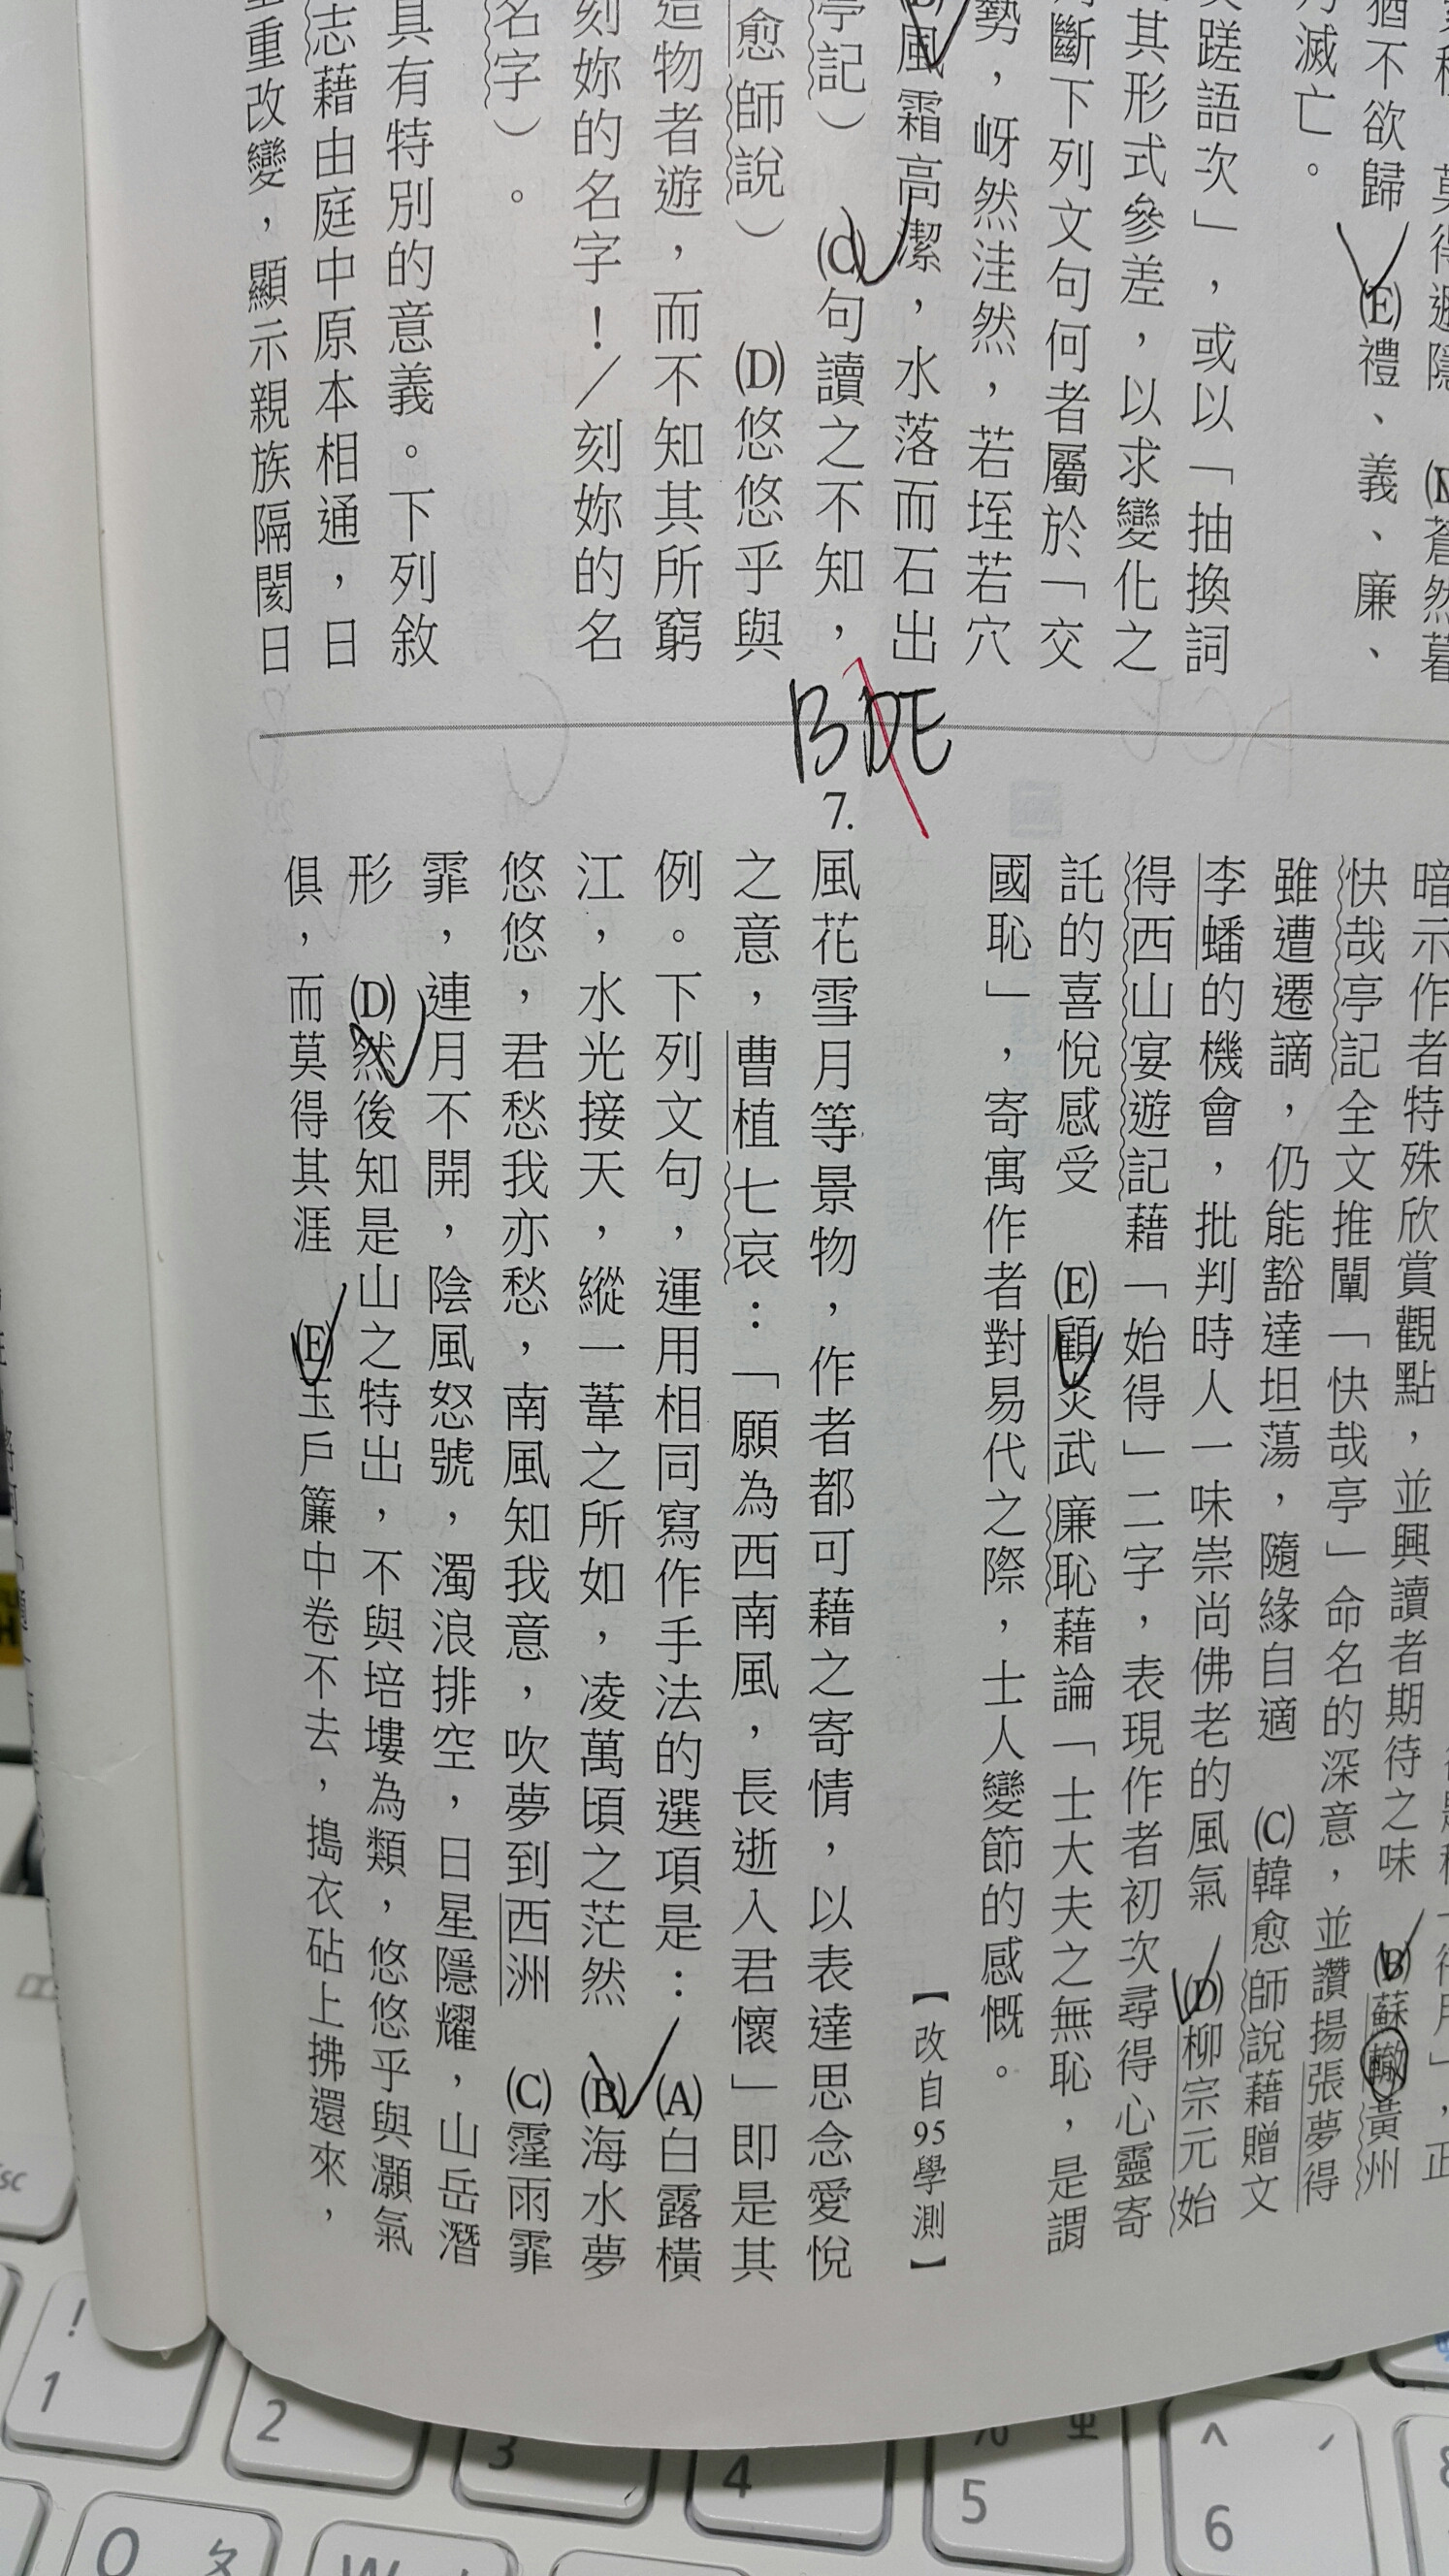 猶不欲歸 (E)禮、義、廉、
滅亡。
蹉語次」，或以「抽換詞
其形式參差，以求變化之
斷下列文句何者屬於「交
勢，岈然洼然，若垤若穴
(B)風霜高潔，水落而石出
亭記） (C)句讀之不知，
愈師說） (D)悠悠乎與
造物者遊，而不知其所窮
刻妳的名字！／刻妳的名
名字）。
具有特別的意義。下列敘
志藉由庭中原本相通，日
重改變，顯示親族隔閡日
BDE
暗示作者特殊欣賞觀點，並興讀者期待之味 (B)蘇轍黃州
快哉亭記全文推闡「快哉亭」命名的深意，並讚揚張夢得
雖遭遷謫，仍能豁達坦蕩，隨緣自適 (C)韓愈師說藉贈文
李蟠的機會，批判時人一味崇尚佛老的風氣 (D)柳宗元始
得西山宴遊記藉「始得」二字，表現作者初次尋得心靈寄
託的喜悅感受 (E)顧炎武廉恥藉論「士大夫之無恥，是謂
國恥」，寄寓作者對易代之際，士人變節的感慨。
【改自95學測】
7.風花雪月等景物，作者都可藉之寄情，以表達思念愛悅
之意，曹植七哀：「願為西南風，長逝入君懷」即是其
例。下列文句，運用相同寫作手法的選項是：(A)白露橫
江，水光接天，縱一葦之所如，凌萬頃之茫然 (B)海水夢
悠悠，君愁我亦愁，南風知我意，吹夢到西洲 (C)霪雨霏
霏，連月不開，陰風怒號，濁浪排空，日星隱耀，山岳潛
形 (D)然後知是山之特出，不與培塿為類，悠悠乎與灝氣
俱，而莫得其涯 (E)玉戶簾中卷不去，搗衣砧上拂還來，
Esc
! 1
2
3
4
% 5
^ 6
8
Q ㄆ
W